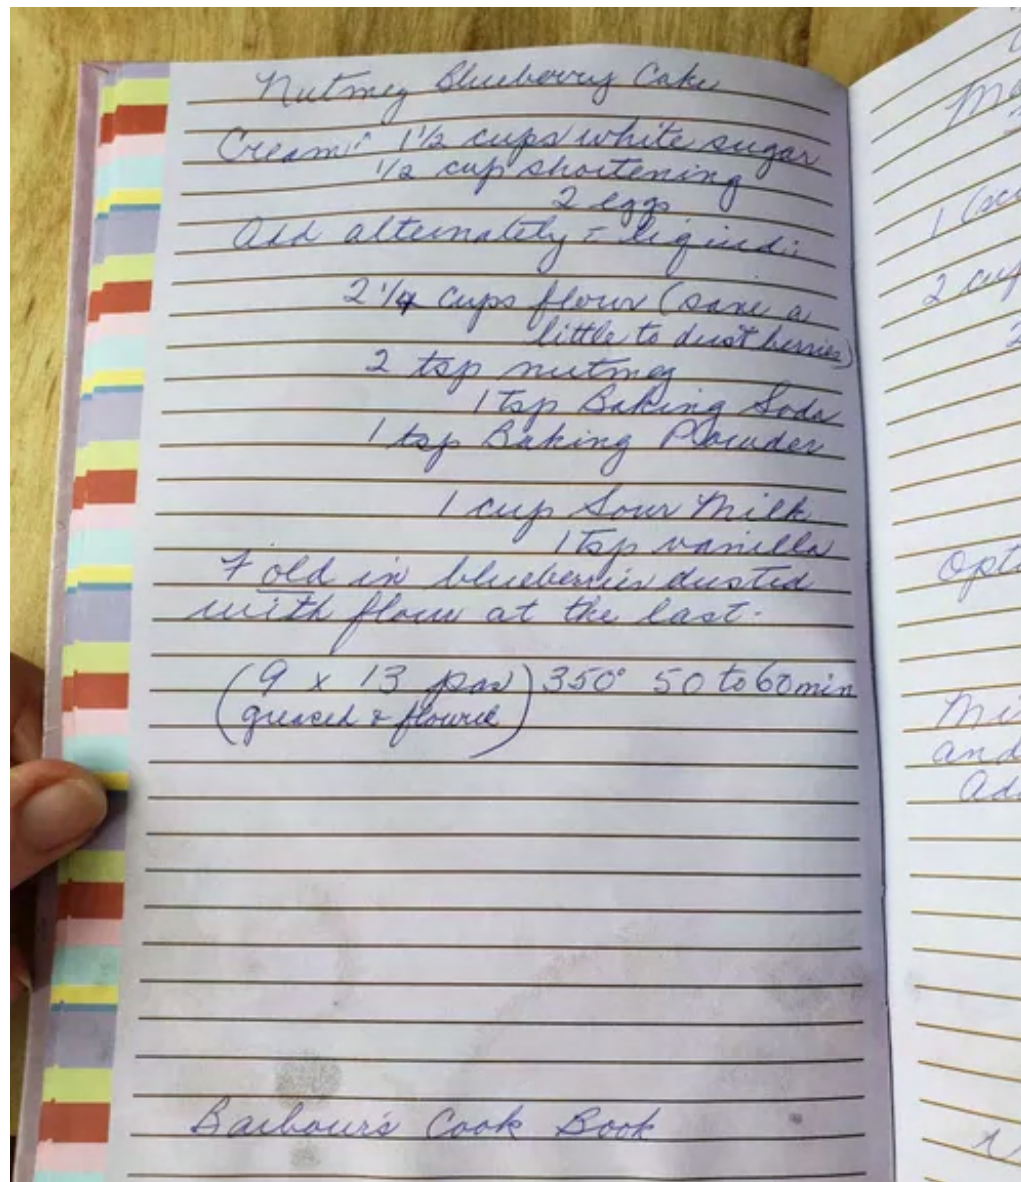 Nutmeg Blueberry Cake
Cream: 1 1/2 cups white sugar
1/2 cup shortening
2 eggs
Add alternately c̄ liquid:
2 1/4 cups flour (save a
little to dust berries)
2 tsp nutmeg
1 tsp Baking Soda
1 tsp Baking Powder
1 cup Sour Milk
1 tsp vanilla
Fold in blueberries dusted
with flour at the last.
(9 x 13 pan) 350° 50 to 60 min
(greased & floured)
Barbour's Cook Book
1
2 cup
2
and